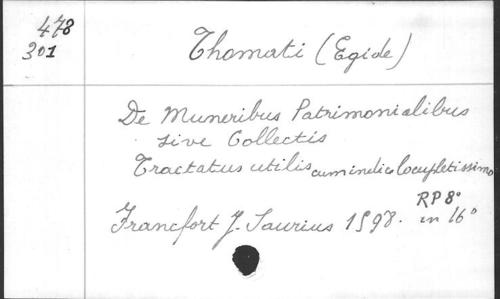 478
301
Thomati (Egide)
De Muneribus Patrimonialibus
sive Collectis
Tractatus utilis cum indice locupletissimo
RP 8°
Francfort J. Saurius 1598. in 16°